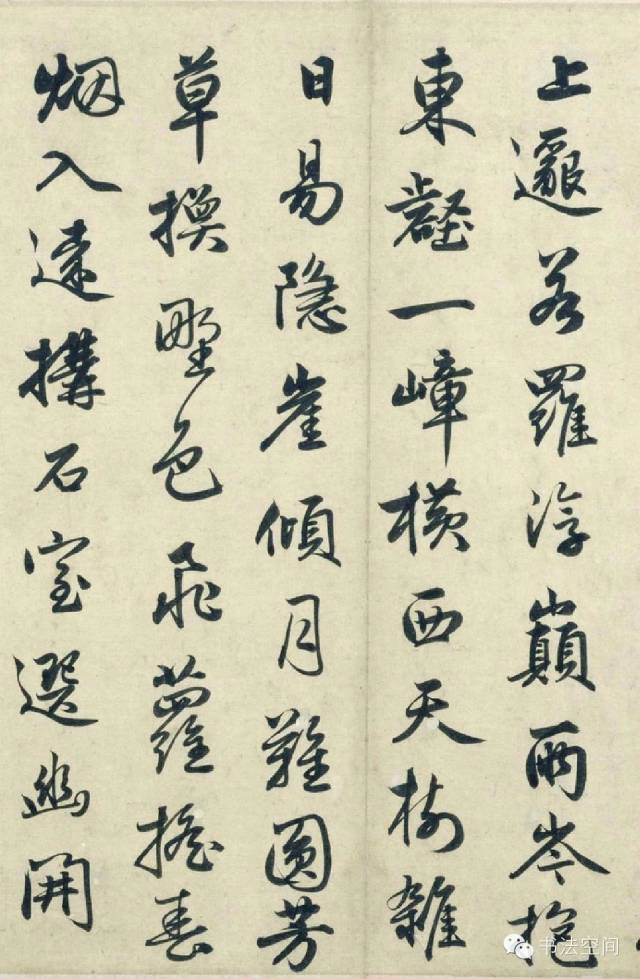 上邈若羅浮巔兩岑抱
東壑一嶂横西天樹雜
日易隐崖傾月難圓芳
草換野色飛蘿搖春
烟入遠構石室選幽開
书法空间